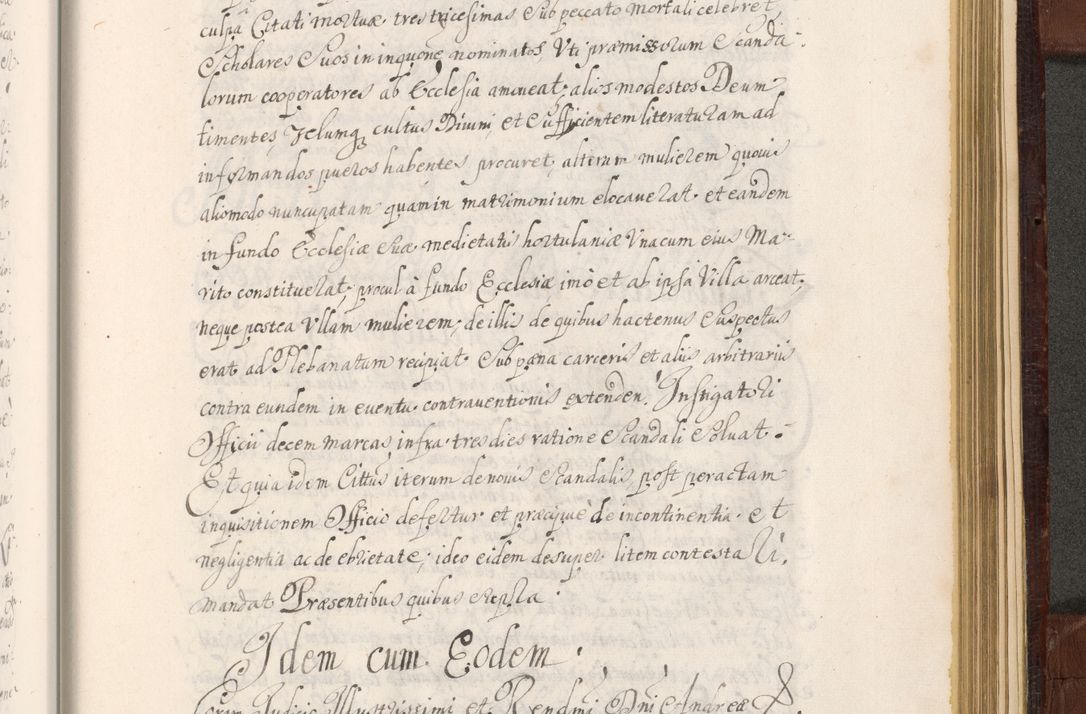 culpa Citati mortuæ tres tricesimas Sub peccato mortali celebret
Scholares Suos in inquõne nominatos, Uti præmissorum Scanda-
lorum cooperatores ab Ecclesia amoueat, alios modestos Deum
timentes, Zelumq cultus Diuini, et Sufficientem literaturam ad
informandos pueros habentes procuret, alteram mulierem quouis
aliomodo nuncupatam quam in matrimonium elocauerat et eandem
in fundo Ecclesiæ Suæ medietatis hortulaniæ Vnacum eius Ma-
rito constituerat, procul à fundo Ecclesiæ imò et ab ipsa Villa arceat,
neque postea Vllam mulierem, de illis de quibus hactenus Suspectus
erat ad Plebanatum recipiat Sub pæna carceris et alijs arbitrarijs
contra eundem in euentu contrauentionis extenden. Instigatori
Officii decem marcas infra tres dies ratione Scandali Soluat.
Et quia idem Cittus iterum de nouis Scandalis post peractam
inquisitionem Officio defertur et præcipuè de incontinentia et
negligentia ac de ebrietate, ideo eidem desuper litem contestari
mandat Præsentibus quibus Supra
Idem cum Eodem.
Coram Judicio Illustrissimi et Rendmi Dni Andreæ